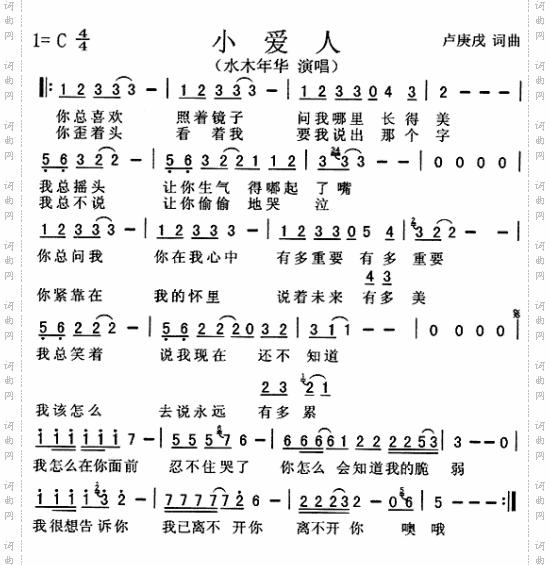 小 爱 人
1= C 4/4
卢庚戌 词曲
（水木年华 演唱）
‖: 1 2 3 3 3 – | 1 2 3 3 3 – | 1 2 3 3 0 4 3 | 2 – – – |
你总喜欢 照着镜子 问我哪里 长得美
你歪着头 看着我 要我说出 那个字
5 6 3 2 2 – | 5 6 3 2 2 1 1 2 | 3 3 3 – – | 0 0 0 0 |
我总摇头 让你生气 得嘟起 了嘴
我总不说 让你偷偷 地哭 泣
1 2 3 3 3 – | 1 2 3 3 3 – | 1 2 3 3 0 5 4 | 3 2 2 – – |
你总问我 你在我心中 有多重要 有多 重要
4 3
你紧靠在 我的怀里 说着未来 有多 美
5 6 2 2 2 – | 5 6 2 2 2 0 3 2 | 3 1 1 – – | 0 0 0 0 |
我总笑着 说我现在 还不 知道
2 3 2 1
我该怎么 去说永远 有多 累
1 1 1 1 1 1 7 – | 5 5 5 7 6 – | 6 6 6 6 1 2 2 2 2 5 3 | 3 – – 0 |
我怎么在你面前 忍不住哭了 你怎么 会知道我的脆 弱
1 1 1 1 3 2 – | 7 7 7 7 7 2 6 – | 2 2 2 3 2 – 0 6 | 5 – – – :‖
我很想告诉你 我已离不 开你 离不开 你 噢 哦
词曲网
词曲网
词曲网
词曲网
词曲网
词曲网
词曲网
词曲网